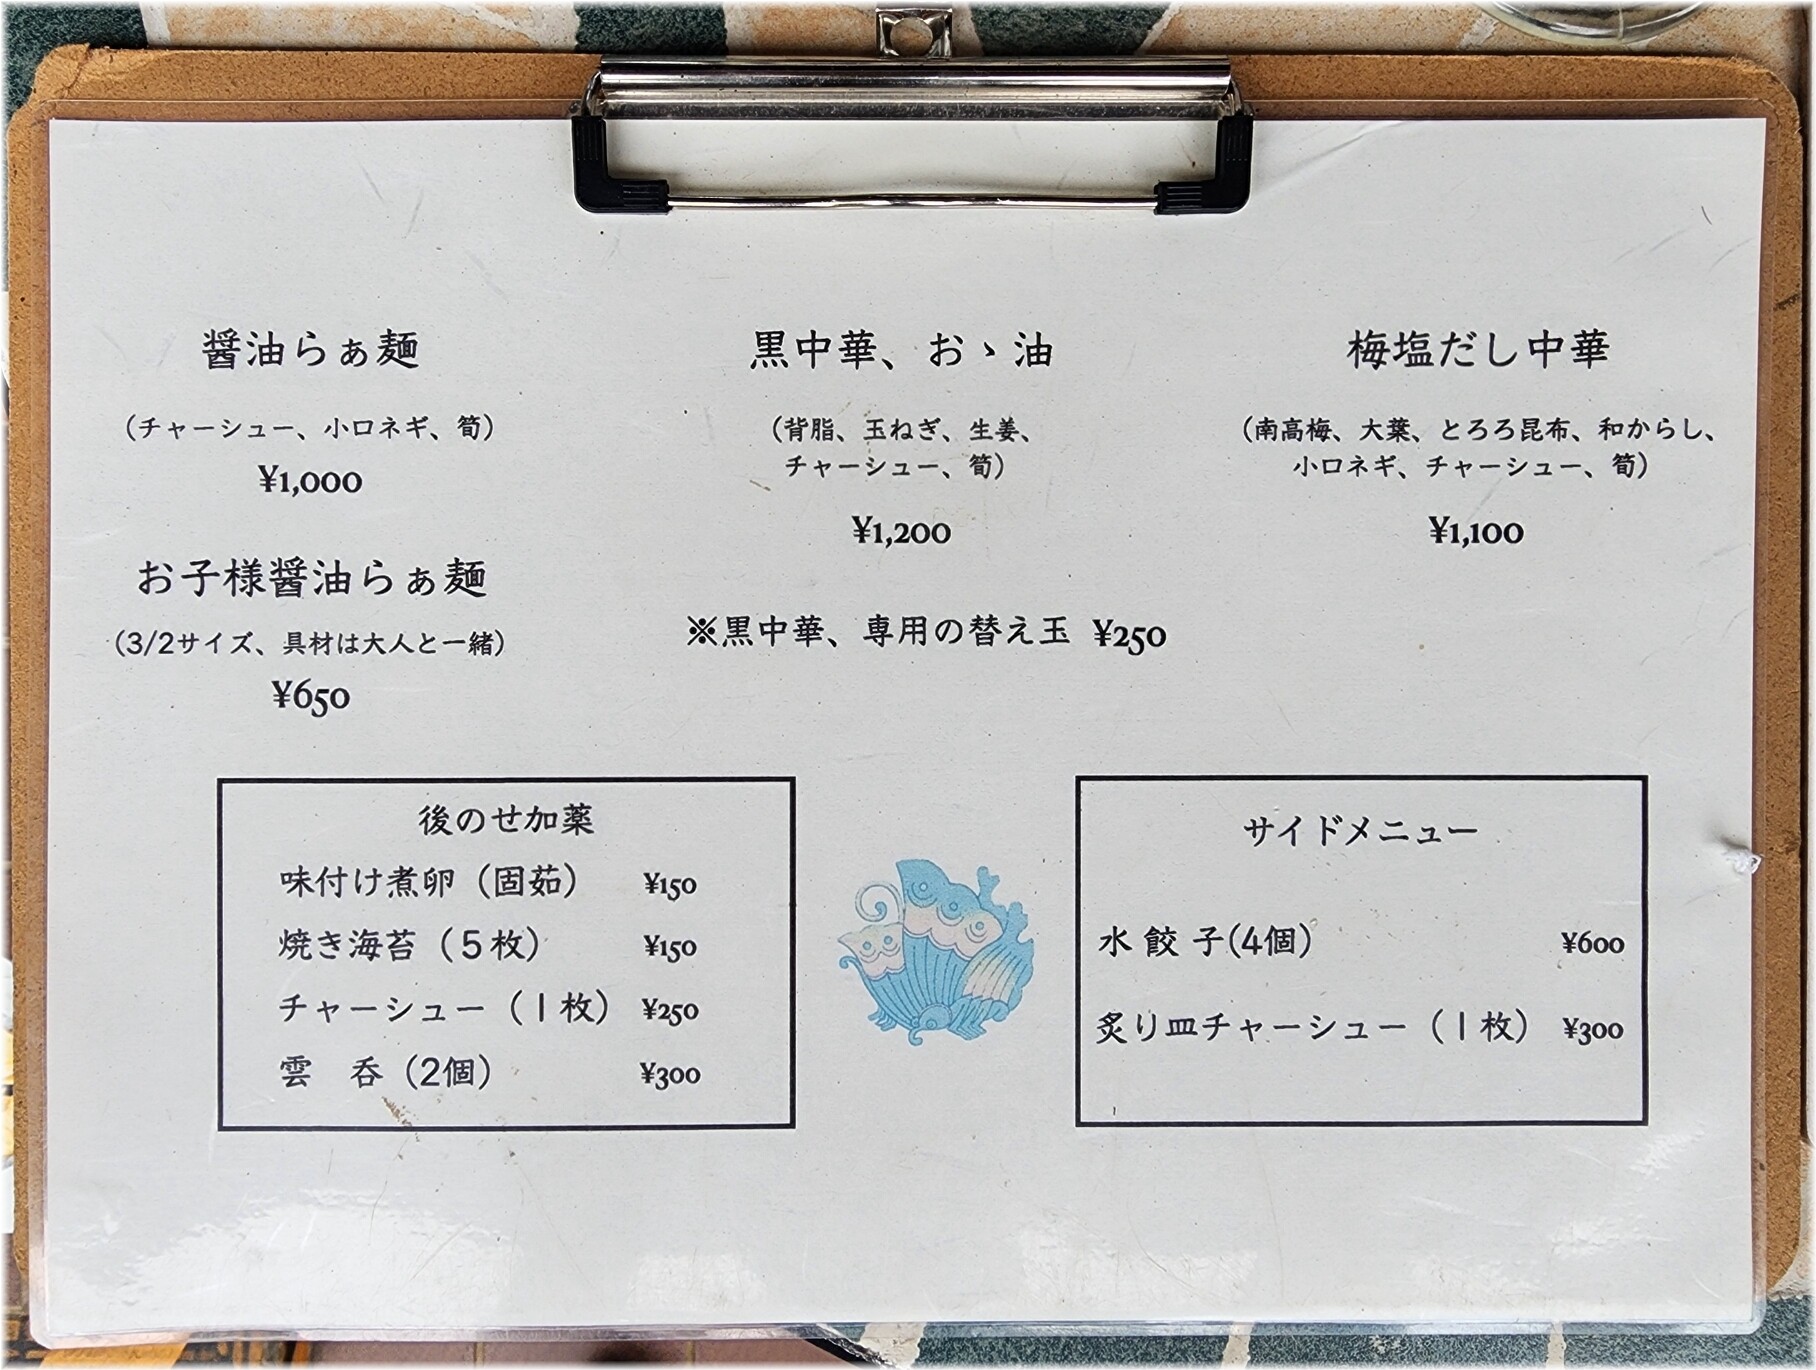 醤油らぁ麺
（チャーシュー、小口ネギ、筍）
¥1,000
お子様醤油らぁ麺
（3/2サイズ、具材は大人と一緒）
¥650
黒中華、おゝ油
（背脂、玉ねぎ、生姜、
チャーシュー、筍）
¥1,200
※黒中華、専用の替え玉 ¥250
梅塩だし中華
（南高梅、大葉、とろろ昆布、和からし、
小口ネギ、チャーシュー、筍）
¥1,100
後のせ加薬
味付け煮卵（固茹） ¥150
焼き海苔（５枚） ¥150
チャーシュー（１枚） ¥250
雲　呑（2個） ¥300
サイドメニュー
水 餃 子(4個) ¥600
炙り皿チャーシュー（１枚） ¥300